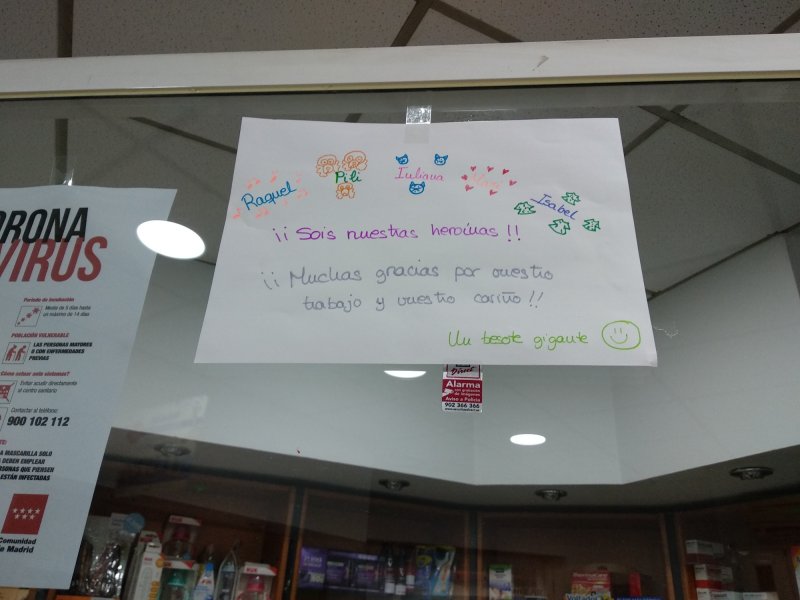 Raquel
Pili
Iuliana
Isabel
¡¡ Sois nuestras heroínas !!
¡¡ Muchas gracias por vuestro
trabajo y vuestro cariño !!
Un besote gigante
ORONA
VIRUS
Periodo de incubación
Media de 5 días hasta
un máximo de 14 días
POBLACIÓN VULNERABLE
LAS PERSONAS MAYORES
O CON ENFERMEDADES
PREVIAS
¿Cómo actuar ante síntomas?
Evitar acudir directamente
al centro sanitario
Contactar al teléfono:
900 102 112
A MASCARILLA SOLO
DEBEN EMPLEAR
ERSONAS QUE PIENSEN
ESTÁN INFECTADAS
Comunidad
de Madrid
Direct
Alarma
con grabación
de imágenes
Aviso a Policía
902 366 366